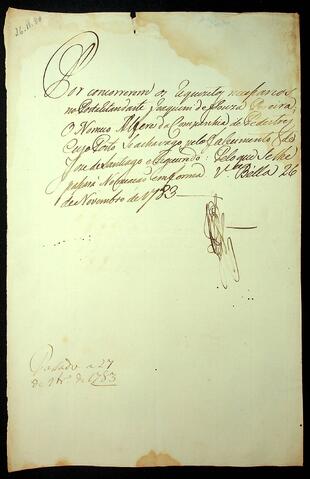 26.11.80
Por concorrerem os requezitos nesesarios
no Portestandarte Joaquim de Souza Pereira,
O Nomeo Alferes da Companhia de Pedestres,
Cujo Posto Seacha vago pelo falecimento de
Joze de Santiago e Figueiredo: Peloque Selhe
pasará Nobramento emforma V.ª Bella 26
de Novembro de 1783
Pasado a 27
de 9br.º de 1783